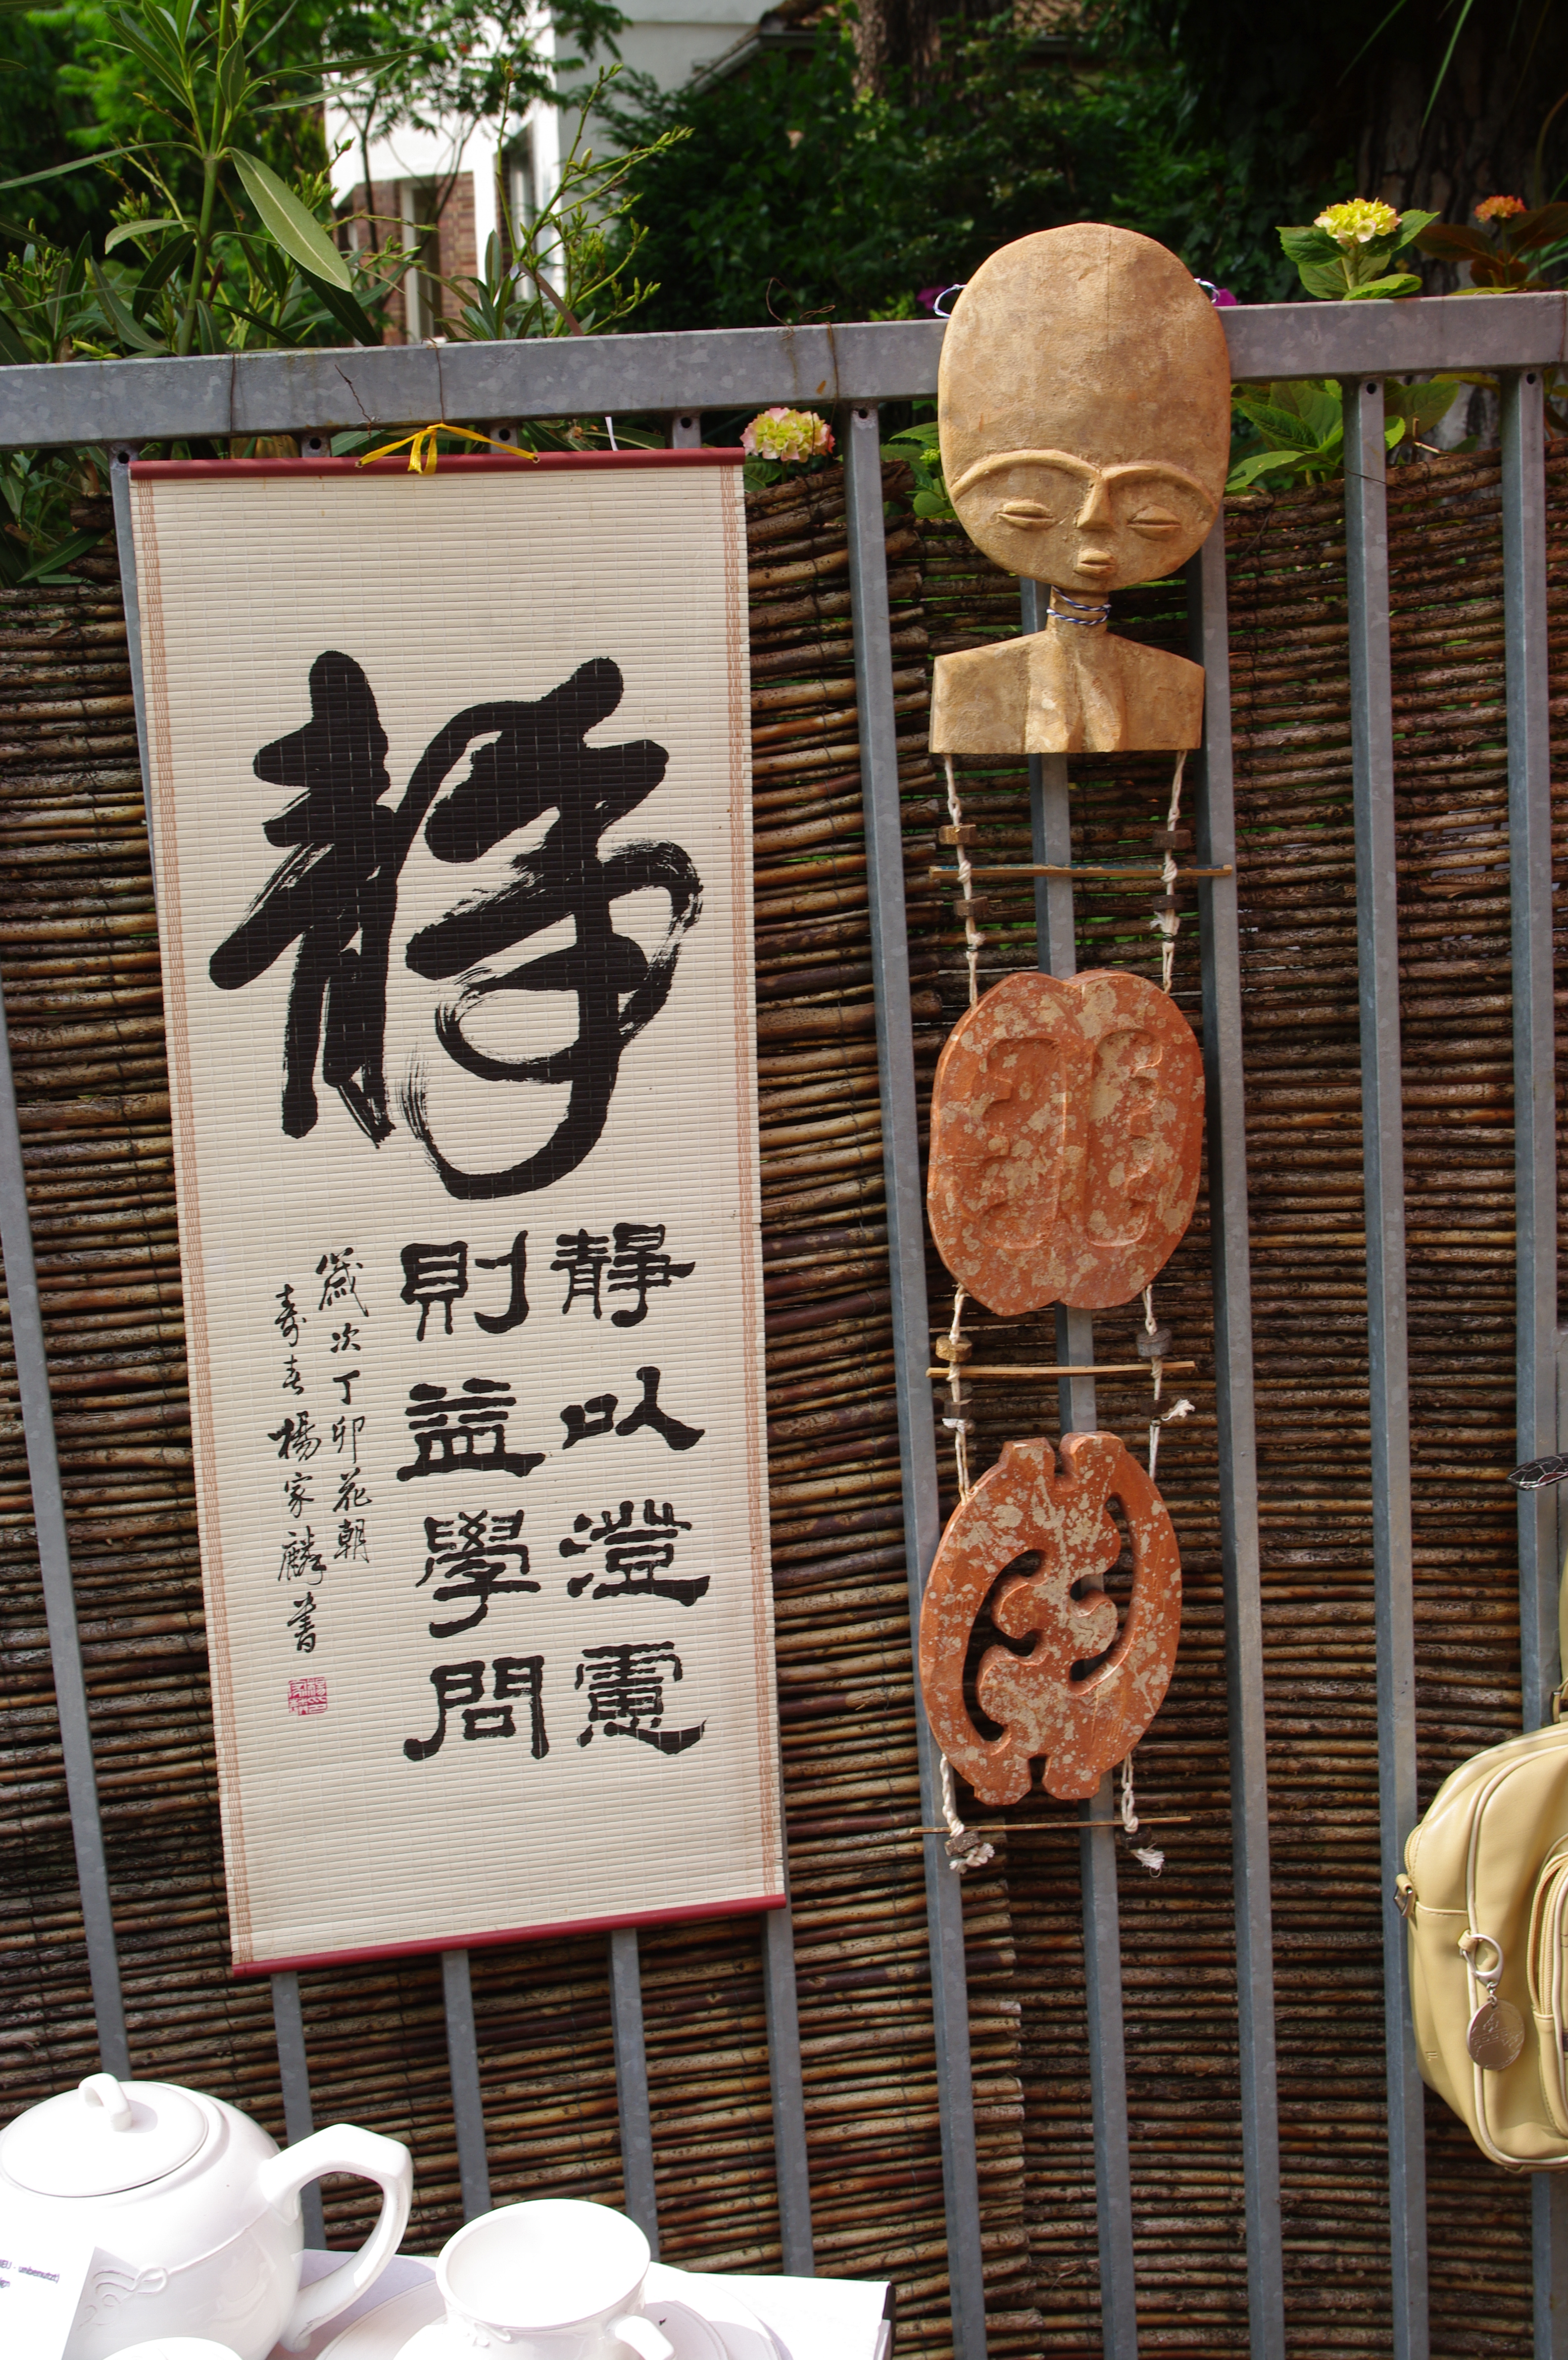 靜
靜以澄慮
則益學問
歲次丁卯花朝
壽春楊家麟書
NEU - unbenutzt)